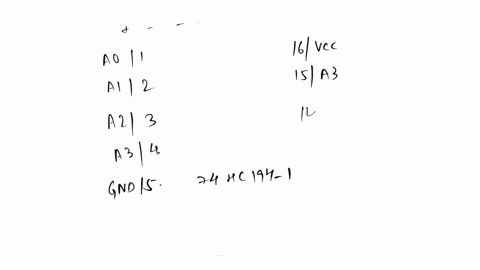 A0 | 1
A1 | 2
A2 | 3
A3 | 4
GND/5. 74 HC 194-1
16/Vcc
15/A3